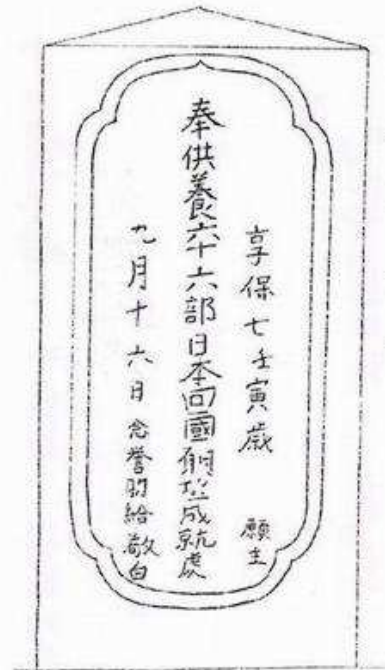 享保七壬寅歳 願主
奉供養六十六部日本回國成就處
九月十六日 念誉給敬白